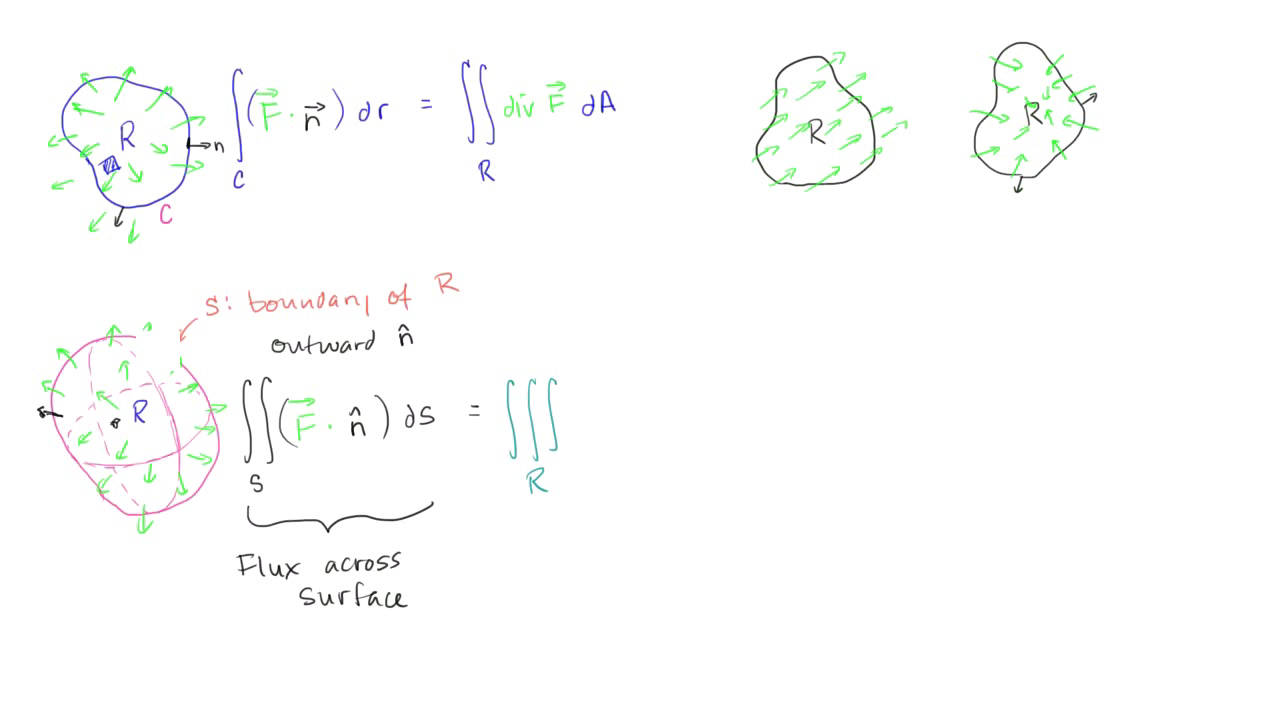 R
n
C
∫_C (F⃗ · n⃗) dr = ∬_R div F⃗ dA
R
R
S: boundary of R
outward n̂
R
∬_S (F⃗ · n̂) dS = ∭_R
Flux across
surface